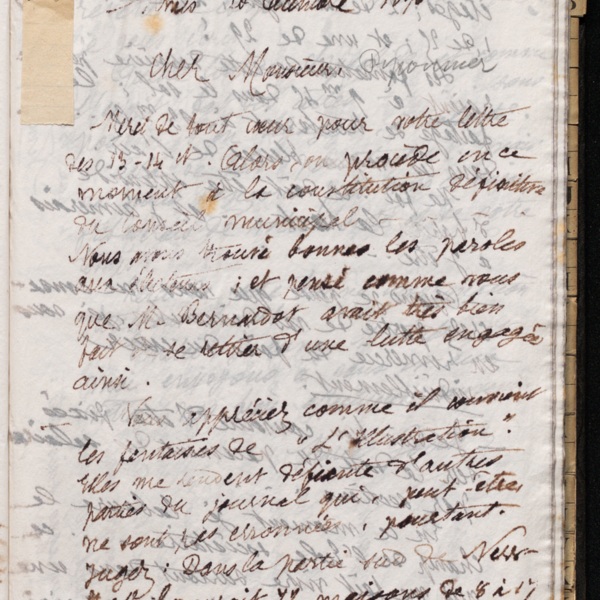 Cher Monsieur, Pryonnier
Merci de tout cœur pour votre lettre
des 13-14 ct. Alors on procède en ce
moment à la constitution définitive
du conseil municipal
Nous avons trouvé bonnes les paroles
aux électeurs ; et pensé comme vous
que M. Bernardot avait très bien
fait de se retirer d'une lutte engagée
ainsi.
Vous appréciez comme il convient
les fantaisies de "L'Illustration".
Elles me rendent défiante d'autres
parties du journal qui, peut être,
ne sont pas erronées, pourtant.
Jugez : Dans la partie sud de
maisons de 8 à 17